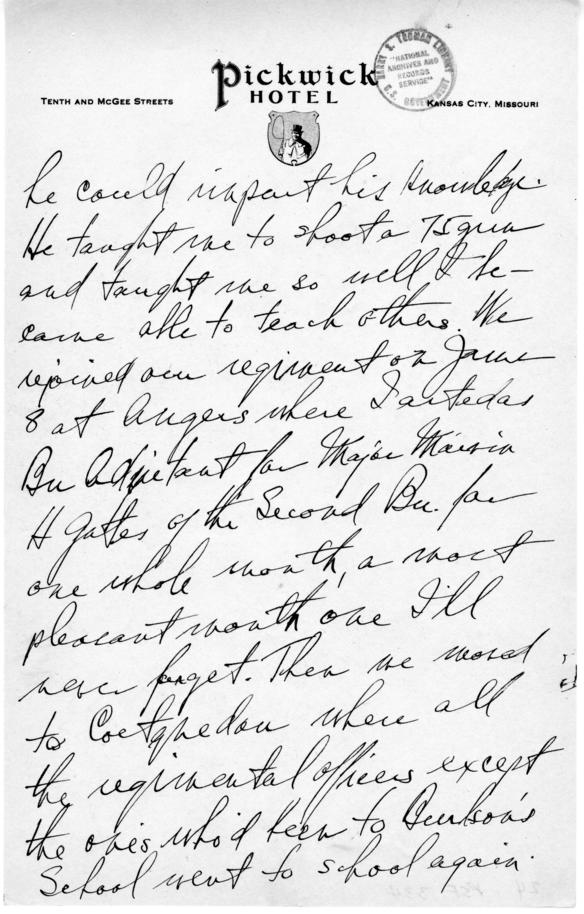 Pickwick
HOTEL
TENTH AND MCGEE STREETS
KANSAS CITY, MISSOURI
HARRY S. TRUMAN LIBRARY
"NATIONAL
ARCHIVES AND
RECORDS
SERVICE"
U.S. GOVERNMENT
he could impart his knowledge.
He taught me to shoot a 75 gun
and taught me so well I be-
came able to teach others. We
rejoined our regiment on June
8 at Angers where I acted as
Bn Adjutant for Major Marvin
H Gates of the Second Bn. for
one whole month, a most
pleasant month one I'll
never forget. Then we moved
to Coetquedon where all
the regimental officers except
the ones who'd been to Burleson's
School went to school again.